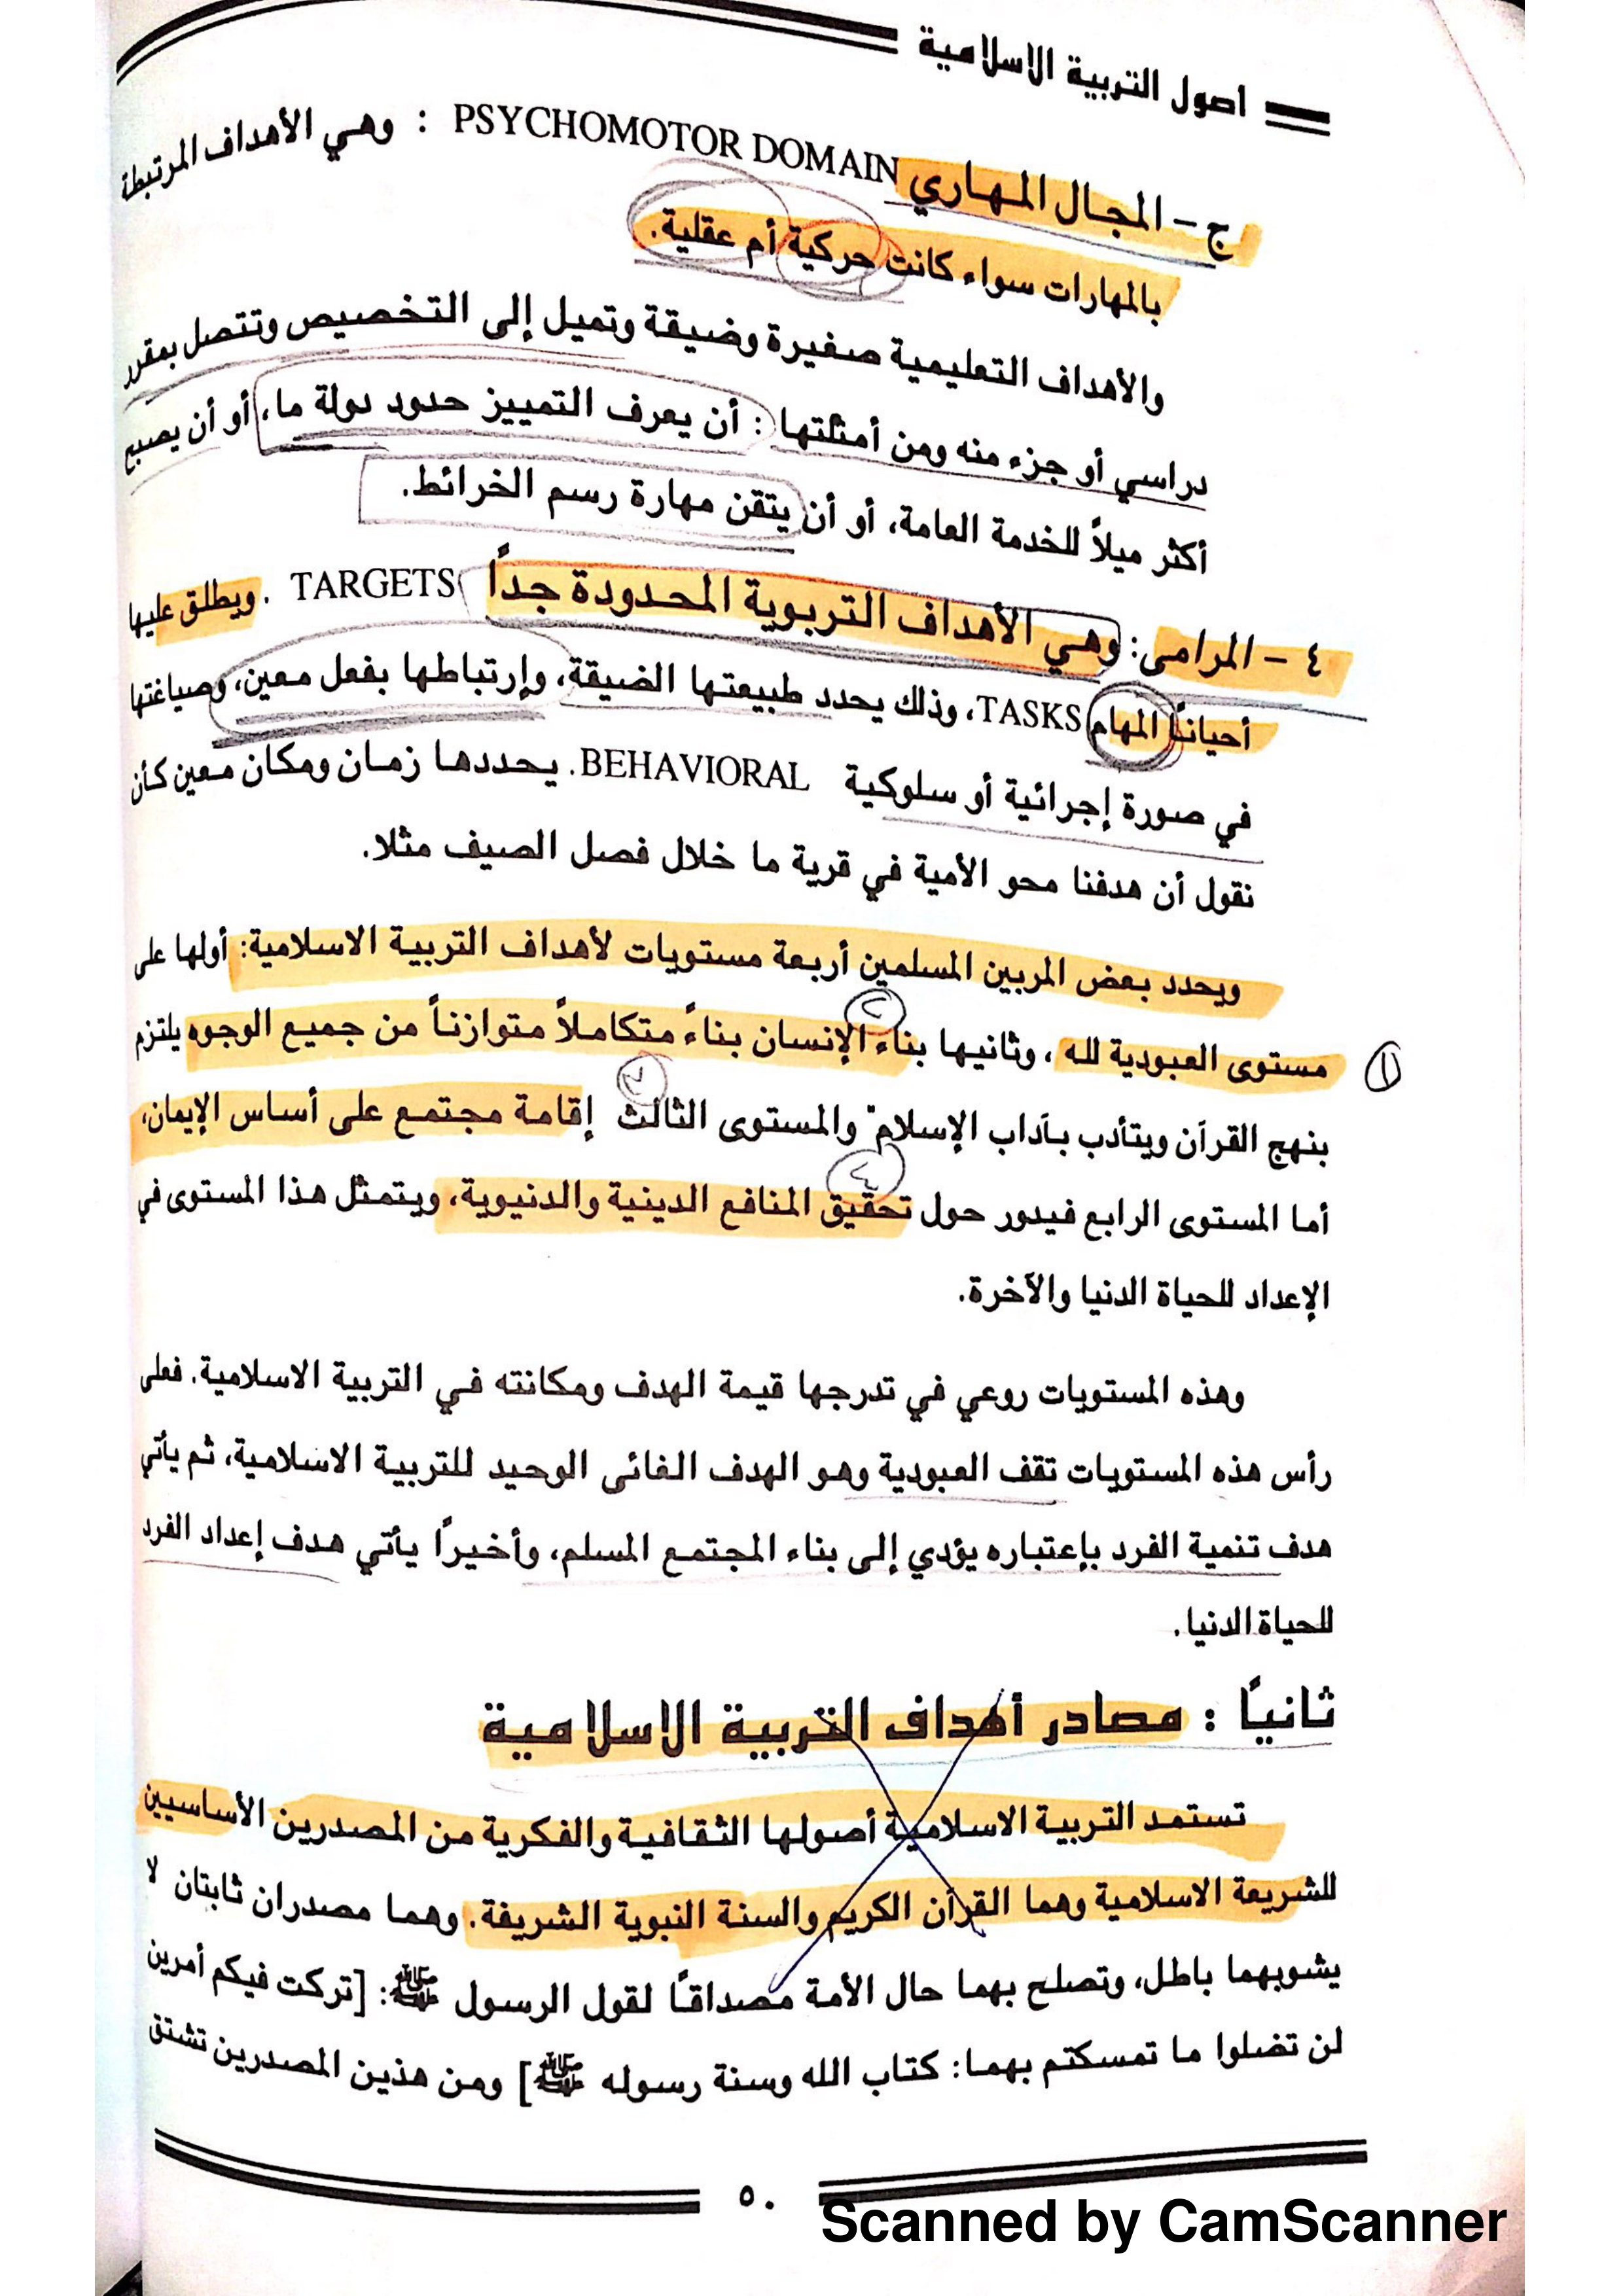 اصول التربية الاسلامية
ج - المجال المهاري PSYCHOMOTOR DOMAIN : وهي الأهداف المرتبطة
بالمهارات سواء كانت حركية أم عقلية.
والأهداف التعليمية صغيرة وضيقة وتميل إلى التخصيص وتتصل بمقرر
دراسي أو جزء منه ومن أمثلتها : أن يعرف التمييز حدود دولة ما، أو أن يصبح
أكثر ميلاً للخدمة العامة، أو أن يتقن مهارة رسم الخرائط.
٤ - المرامى: وهي الأهداف التربوية المحدودة جداً TARGETS . ويطلق عليها
أحياناً المهام TASKS، وذلك يحدد طبيعتها الضيقة، وإرتباطها بفعل معين، وصياغتها
في صورة إجرائية أو سلوكية BEHAVIORAL. يحددها زمان ومكان معين كأن
نقول أن هدفنا محو الأمية في قرية ما خلال فصل الصيف مثلا.
ويحدد بعض المربين المسلمين أربعة مستويات لأهداف التربية الاسلامية: أولها على
١ مستوى العبودية لله ، وثانيها بناء الإنسان بناءً متكاملاً متوازناً من جميع الوجوه يلتزم
٢
بنهج القرآن ويتأدب بآداب الإسلام" والمستوى الثالث إقامة مجتمع على أساس الإيمان،
٣
أما المستوى الرابع فيدور حول تحقيق المنافع الدينية والدنيوية، ويتمثل هذا المستوى في
٤
الإعداد للحياة الدنيا والآخرة.
وهذه المستويات روعي في تدرجها قيمة الهدف ومكانته في التربية الاسلامية. فعلى
رأس هذه المستويات تقف العبودية وهو الهدف الغائى الوحيد للتربية الاسلامية، ثم يأتي
هدف تنمية الفرد بإعتباره يؤدي إلى بناء المجتمع المسلم، وأخيرًا يأتي هدف إعداد الفرد
للحياة الدنيا.
ثانيًا : مصادر أهداف التربية الاسلامية
تستمد التربية الاسلامية أصولها الثقافية والفكرية من المصدرين الأساسيين
للشريعة الاسلامية وهما القرآن الكريم والسنة النبوية الشريفة. وهما مصدران ثابتان لا
يشوبهما باطل، وتصلح بهما حال الأمة مصداقًا لقول الرسول ﷺ: [تركت فيكم أمرين
لن تضلوا ما تمسكتم بهما: كتاب الله وسنة رسوله ﷺ] ومن هذين المصدرين تشتق
٥٠
Scanned by CamScanner